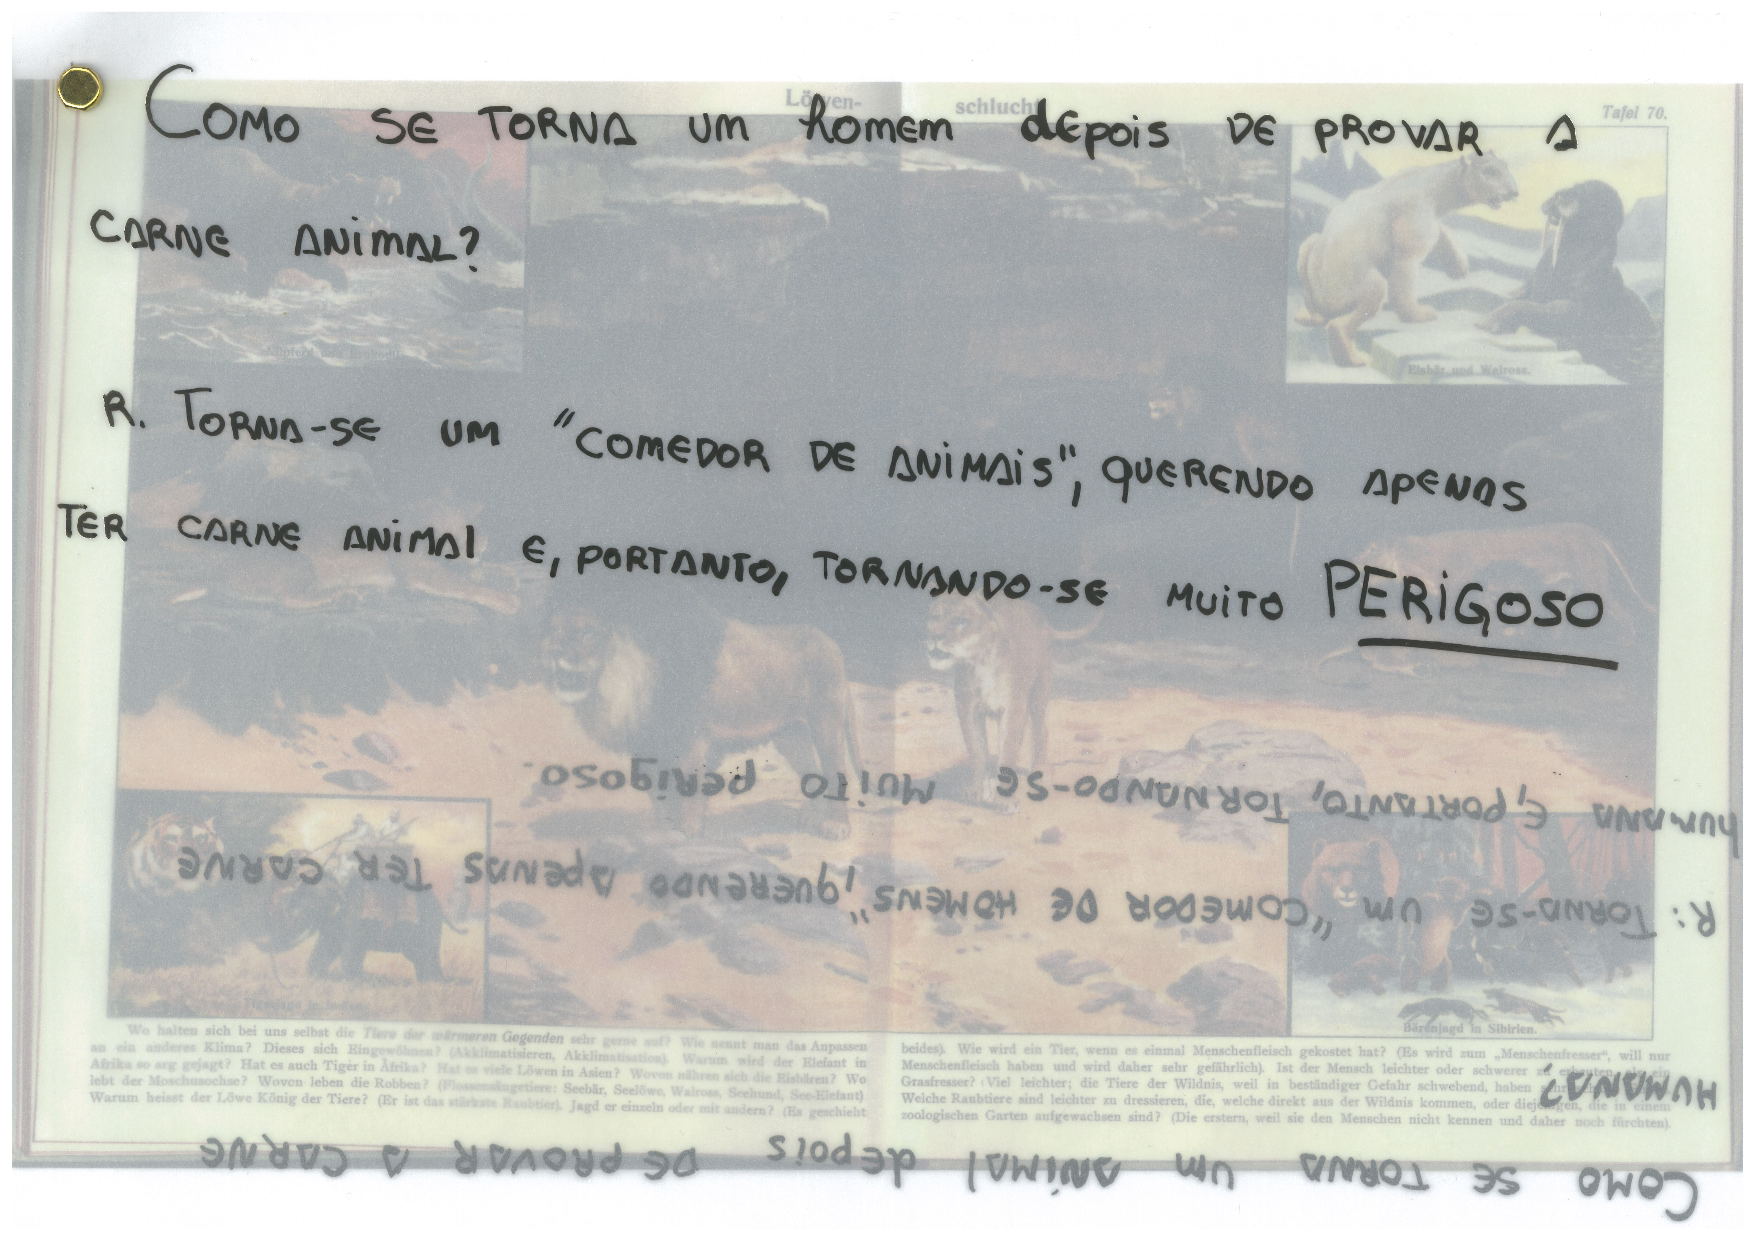 Löwen-schlucht
Tafel 70.
COMO SE TORNA UM homem dEpois DE PROVAR A
CARNE ANiMAL?
Eisbär und Walross.
R. TORNA-SE UM "COMEDOR DE ANiMAiS", QUERENDO APENAS
TER CARNE ANiMAl E, PORTANTO, TORNANDO-SE MUiTO PERiGOSO
humana E, PORTANTO, TORNANDO-SE MUiTO PERiGOSO.
R: TORNA-SE UM "COMEDOR DE HOMENS", QUERENDO APENAS TER CARNE
Bärenjagd in Sibirien.
Wo halten sich bei uns selbst die Tiere der wärmeren Gegenden sehr gerne auf? Wie nennt man das Anpassen
an ein anderes Klima? Dieses sich Eingewöhnen? (Akklimatisieren, Akklimatisation). Warum wird der Elefant in
Afrika so arg gejagt? Hat es auch Tiger in Afrika? Hat es viele Löwen in Asien? Wovon nähren sich die Eisbären? Wo
lebt der Moschusochse? Wovon leben die Robben? (Flossensäugetiere: Seebär, Seelöwe, Walross, Seehund, See-Elefant)
Warum heisst der Löwe König der Tiere? (Er ist das stärkste Raubtier). Jagd er einzeln oder mit andern? (Es geschieht
beides). Wie wird ein Tier, wenn es einmal Menschenfleisch gekostet hat? (Es wird zum „Menschenfresser", will nur
Menschenfleisch haben und wird daher sehr gefährlich). Ist der Mensch leichter oder schwerer zu ein
Grasfresser? (Viel leichter; die Tiere der Wildnis, weil in beständiger Gefahr schwebend, haben
Welche Raubtiere sind leichter zu dressieren, die, welche direkt aus der Wildnis kommen, oder diejenigen, die in einem
zoologischen Garten aufgewachsen sind? (Die erstern, weil sie den Menschen nicht kennen und daher noch fürchten).
COMO SE TORNA UM ANiMAl dEpois DE PROVAR A CARNE
HUMANA?